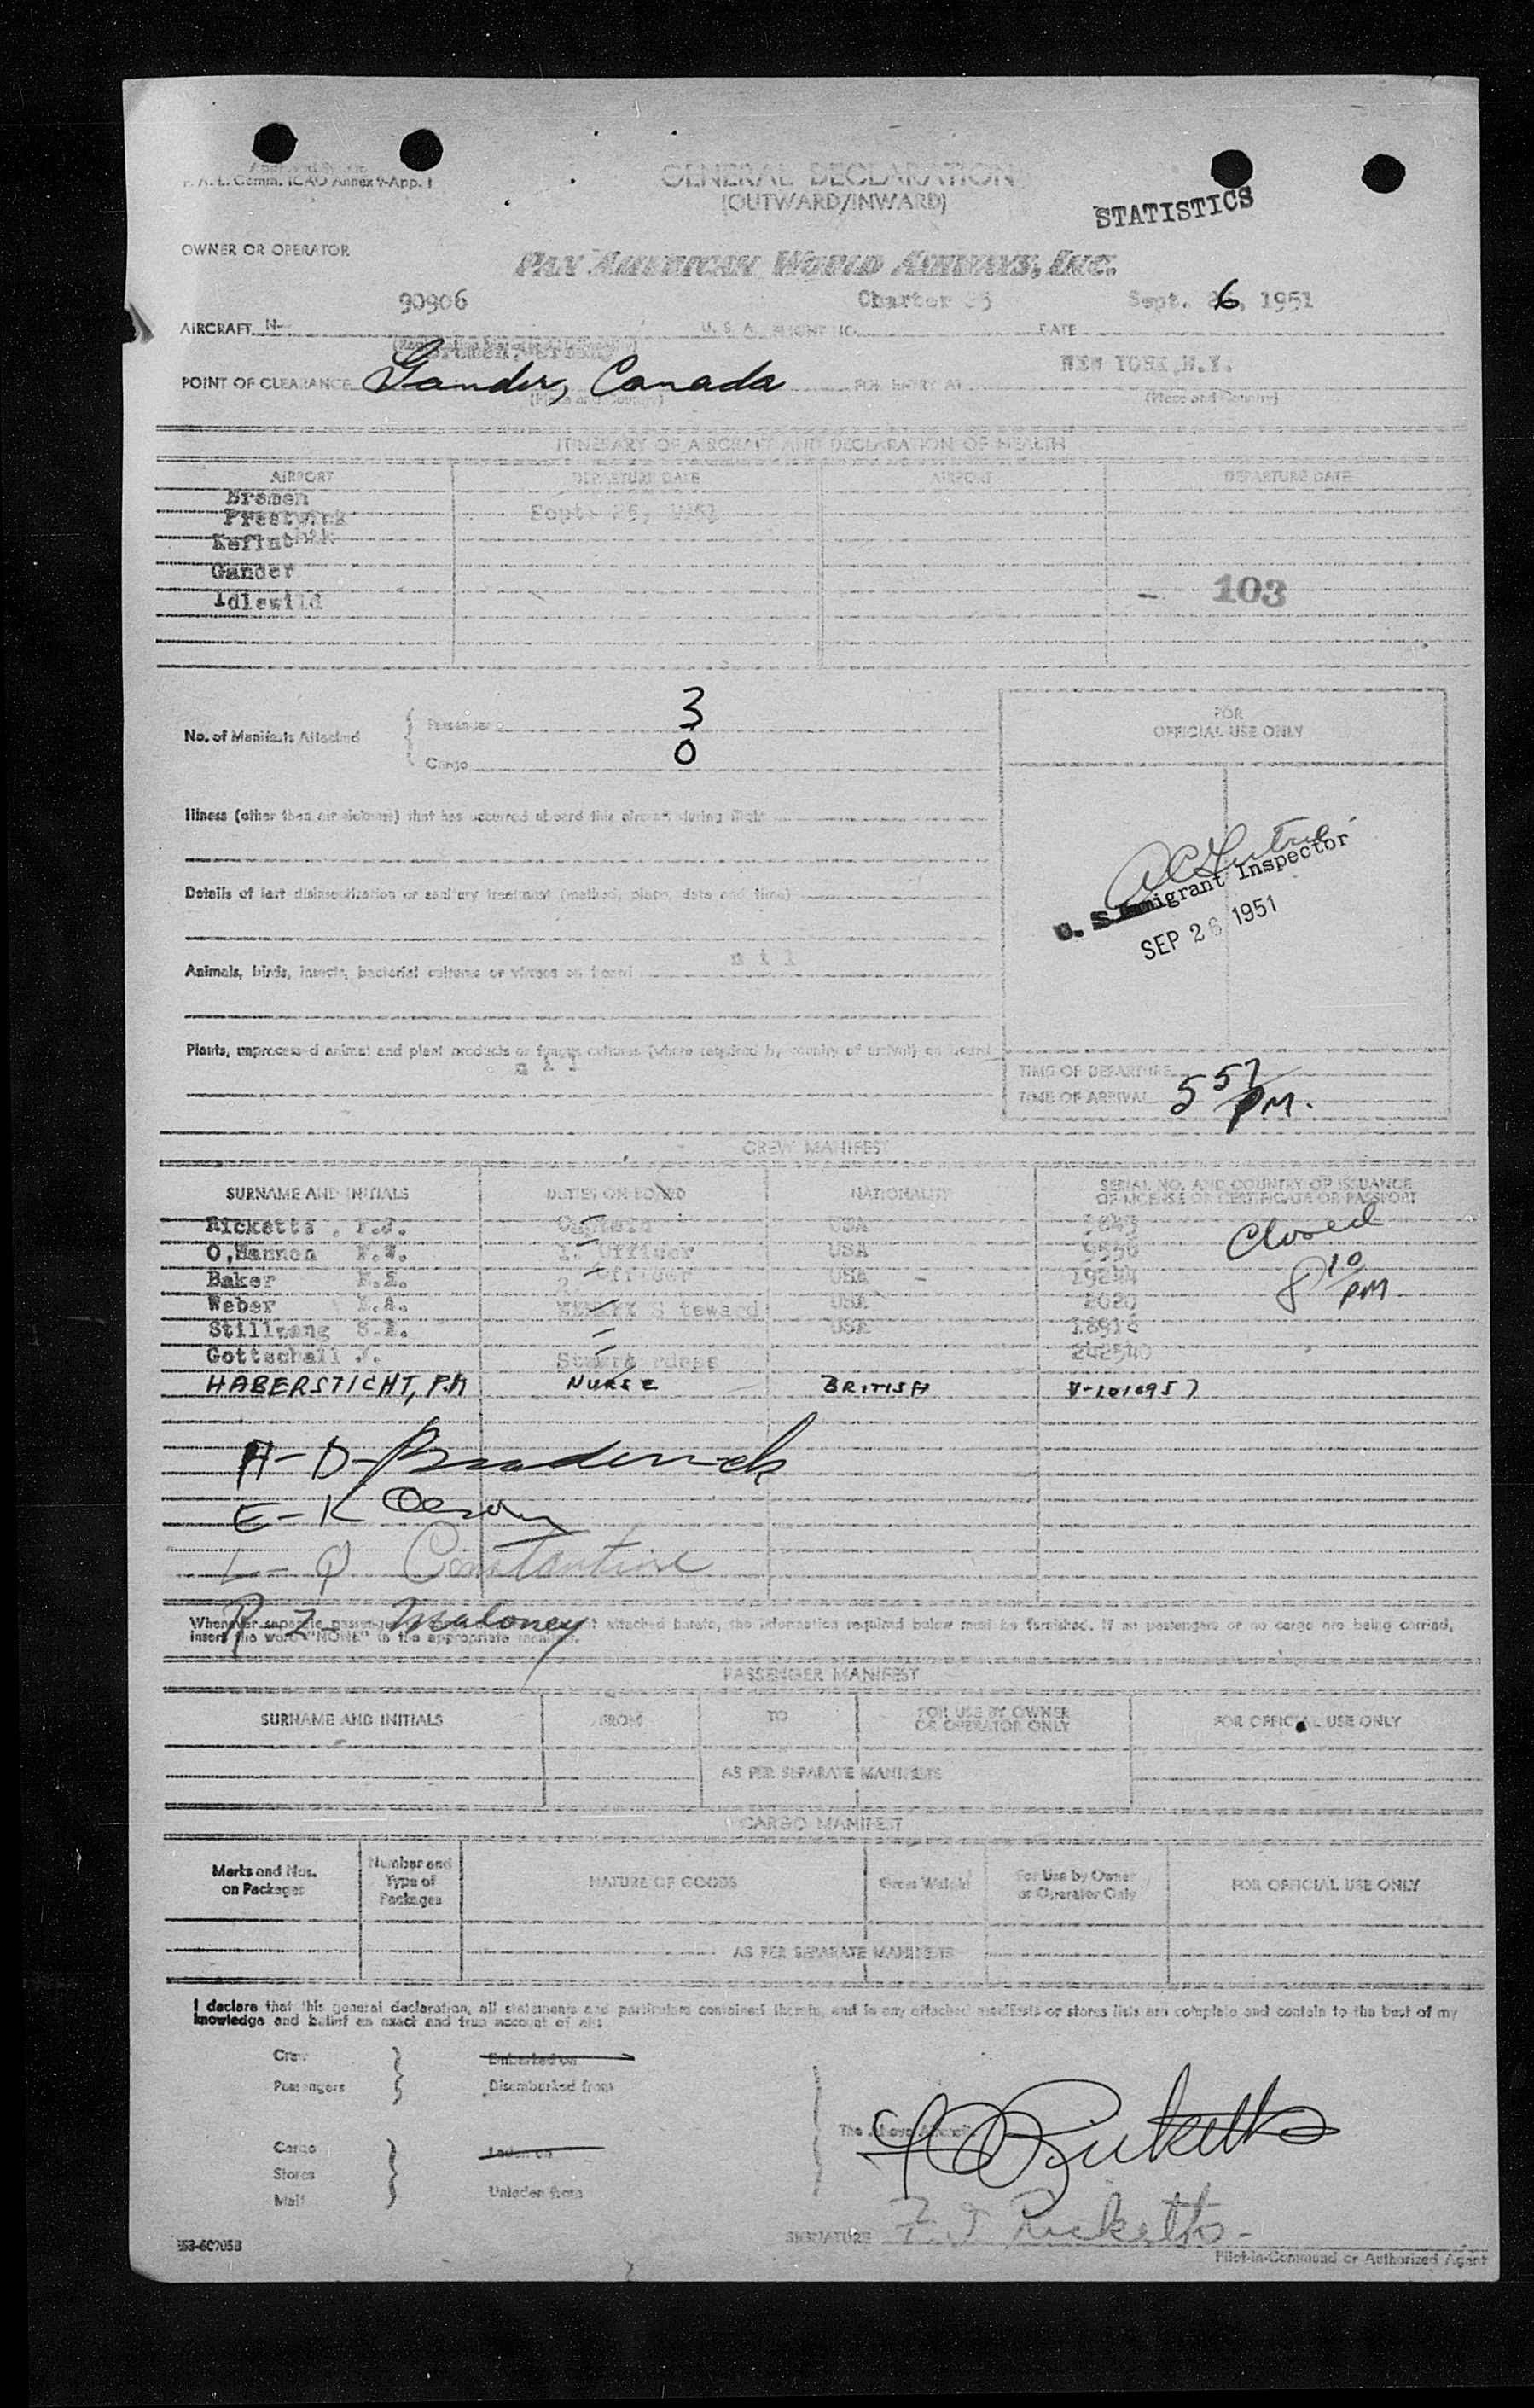 P.A.L. Comm. ICAO Annex 9-App. 1
GENERAL DECLARATION
(OUTWARD/INWARD)
STATISTICS
OWNER OR OPERATOR
PAN AMERICAN WORLD AIRWAYS, INC.
90906 Charter Sept. 26, 1951
AIRCRAFT N- U. S. A. FLIGHT NO. DATE
Bremen,
POINT OF CLEARANCE Gander, Canada FOR ENTRY AT NEW YORK, N.Y.
(Place and Country) (Place and Country)
ITINERARY OF AIRCRAFT AND DECLARATION OF HEALTH
AIRPORT DEPARTURE DATE AIRPORT DEPARTURE DATE
Bremen
Prestwick Sept. 25, 1951
Keflavik
Gander
Idlewild
- 103
No. of Manifests Attached
Passenger 3
Cargo 0
FOR
OFFICIAL USE ONLY
Illness (other than air sickness) that has occurred aboard this aircraft during flight
U. S. Immigrant Inspector
SEP 26 1951
Details of last disinsectization or sanitary treatment (method, place, date and time)
Animals, birds, insects, bacterial cultures or viruses on board nil
Plants, unprocessed animal and plant products or fungus cultures (where required by country of arrival) on board
nil
TIME OF DEPARTURE
TIME OF ARRIVAL 5 57 PM.
CREW MANIFEST
SURNAME AND INITIALS DUTIES ON BOARD NATIONALITY SERIAL NO. AND COUNTRY OF ISSUANCE
OF LICENSE OR CERTIFICATE OR PASSPORT
Ricketts, F.J. Captain USA
O,Hannon F.W. 1. Officer USA 9556
Baker 2. Officer USA 19244
Weber Steward USA 2020
USA
Gottschall J. Stewardess 242540
HABERSTICHT, P.M NURSE BRITISH V-1010957
Closed
8 10 PM
A-D-Broderick
E-K
L- Constantine
R Z- Maloney
Whenever separate passenger attached hereto, the information required below must be furnished. If no passengers or no cargo are being carried,
insert the word "NONE" in the appropriate manifest.
PASSENGER MANIFEST
SURNAME AND INITIALS FROM TO FOR USE BY OWNER
OR OPERATOR ONLY FOR OFFICIAL USE ONLY
AS PER SEPARATE MANIFESTS
CARGO MANIFEST
Marks and Nos.
on Packages Number and
Type of
Packages NATURE OF GOODS Gross Weight For Use by Owner
or Operator Only FOR OFFICIAL USE ONLY
AS PER SEPARATE MANIFESTS
I declare that this general declaration, all statements and particulars contained therein, and in any attached manifests or stores lists are complete and contain to the best of my
knowledge and belief an exact and true account of all:
Crew Embarked on
Passengers Disembarked from
The Above Aircraft
Cargo Laden on
Stores
Mail Unladen from
F J Ricketts
SIGNATURE F. J Ricketts
Pilot-in-Command or Authorized Agent